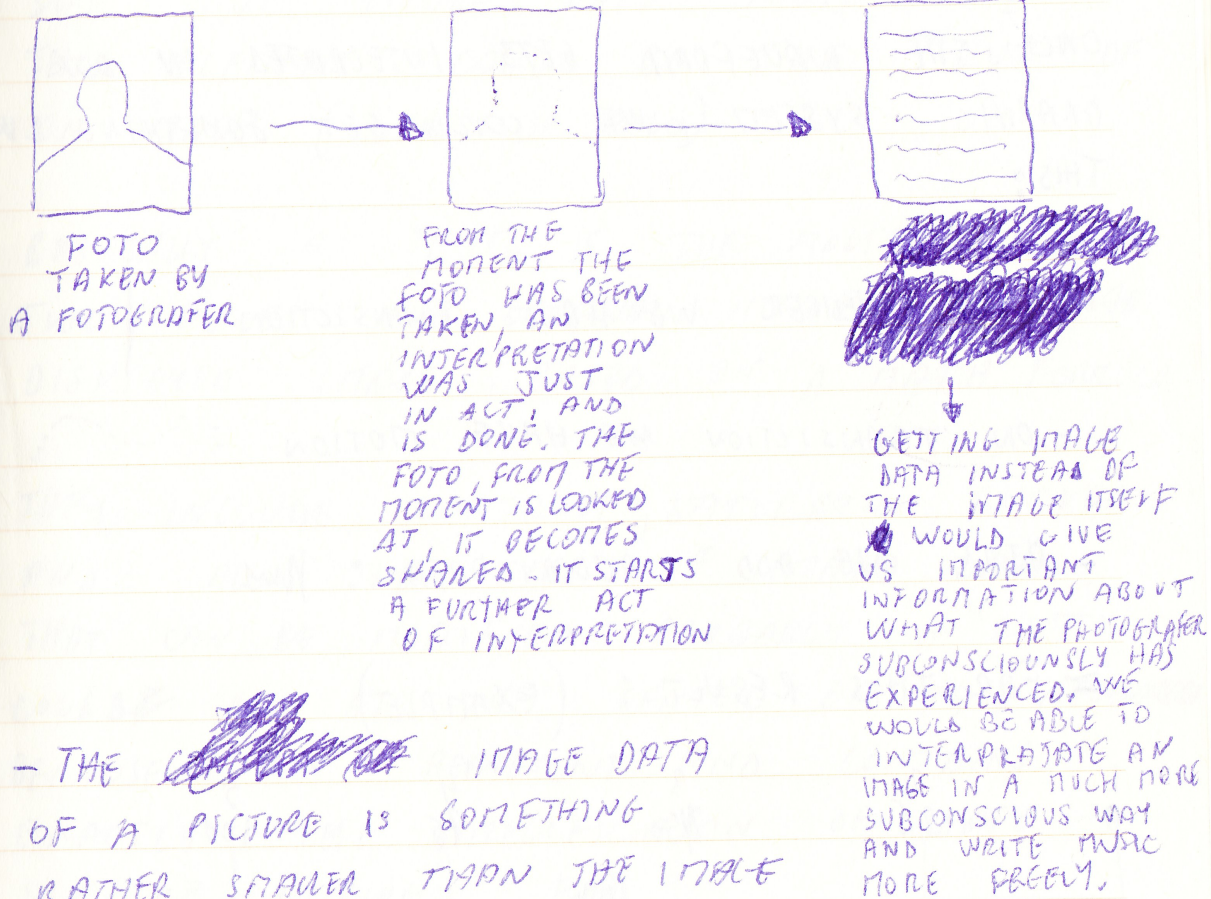 FOTO
TAKEN BY
A FOTOGRAFER
FROM THE
MOMENT THE
FOTO HAS BEEN
TAKEN, AN
INTERPRETATION
WAS JUST
IN ACT, AND
IS DONE. THE
FOTO, FROM THE
MOMENT IS LOOKED
AT, IT BECOMES
SHARED. IT STARTS
A FURTHER ACT
OF INTERPRETATION
GETTING IMAGE
DATA INSTEAD OF
THE IMAGE ITSELF
WOULD GIVE
US IMPORTANT
INFORMATION ABOUT
WHAT THE PHOTOGRAFER
SUBCONSCIOUNSLY HAS
EXPERIENCED. WE
WOULD BE ABLE TO
INTERPRATATE AN
IMAGE IN A MUCH MORE
SUBCONSCIOUS WAY
AND WRITE MUSIC
MORE FREELY.
- THE IMAGE DATA
OF A PICTURE IS SOMETHING
RATHER SMALLER THAN THE IMAGE